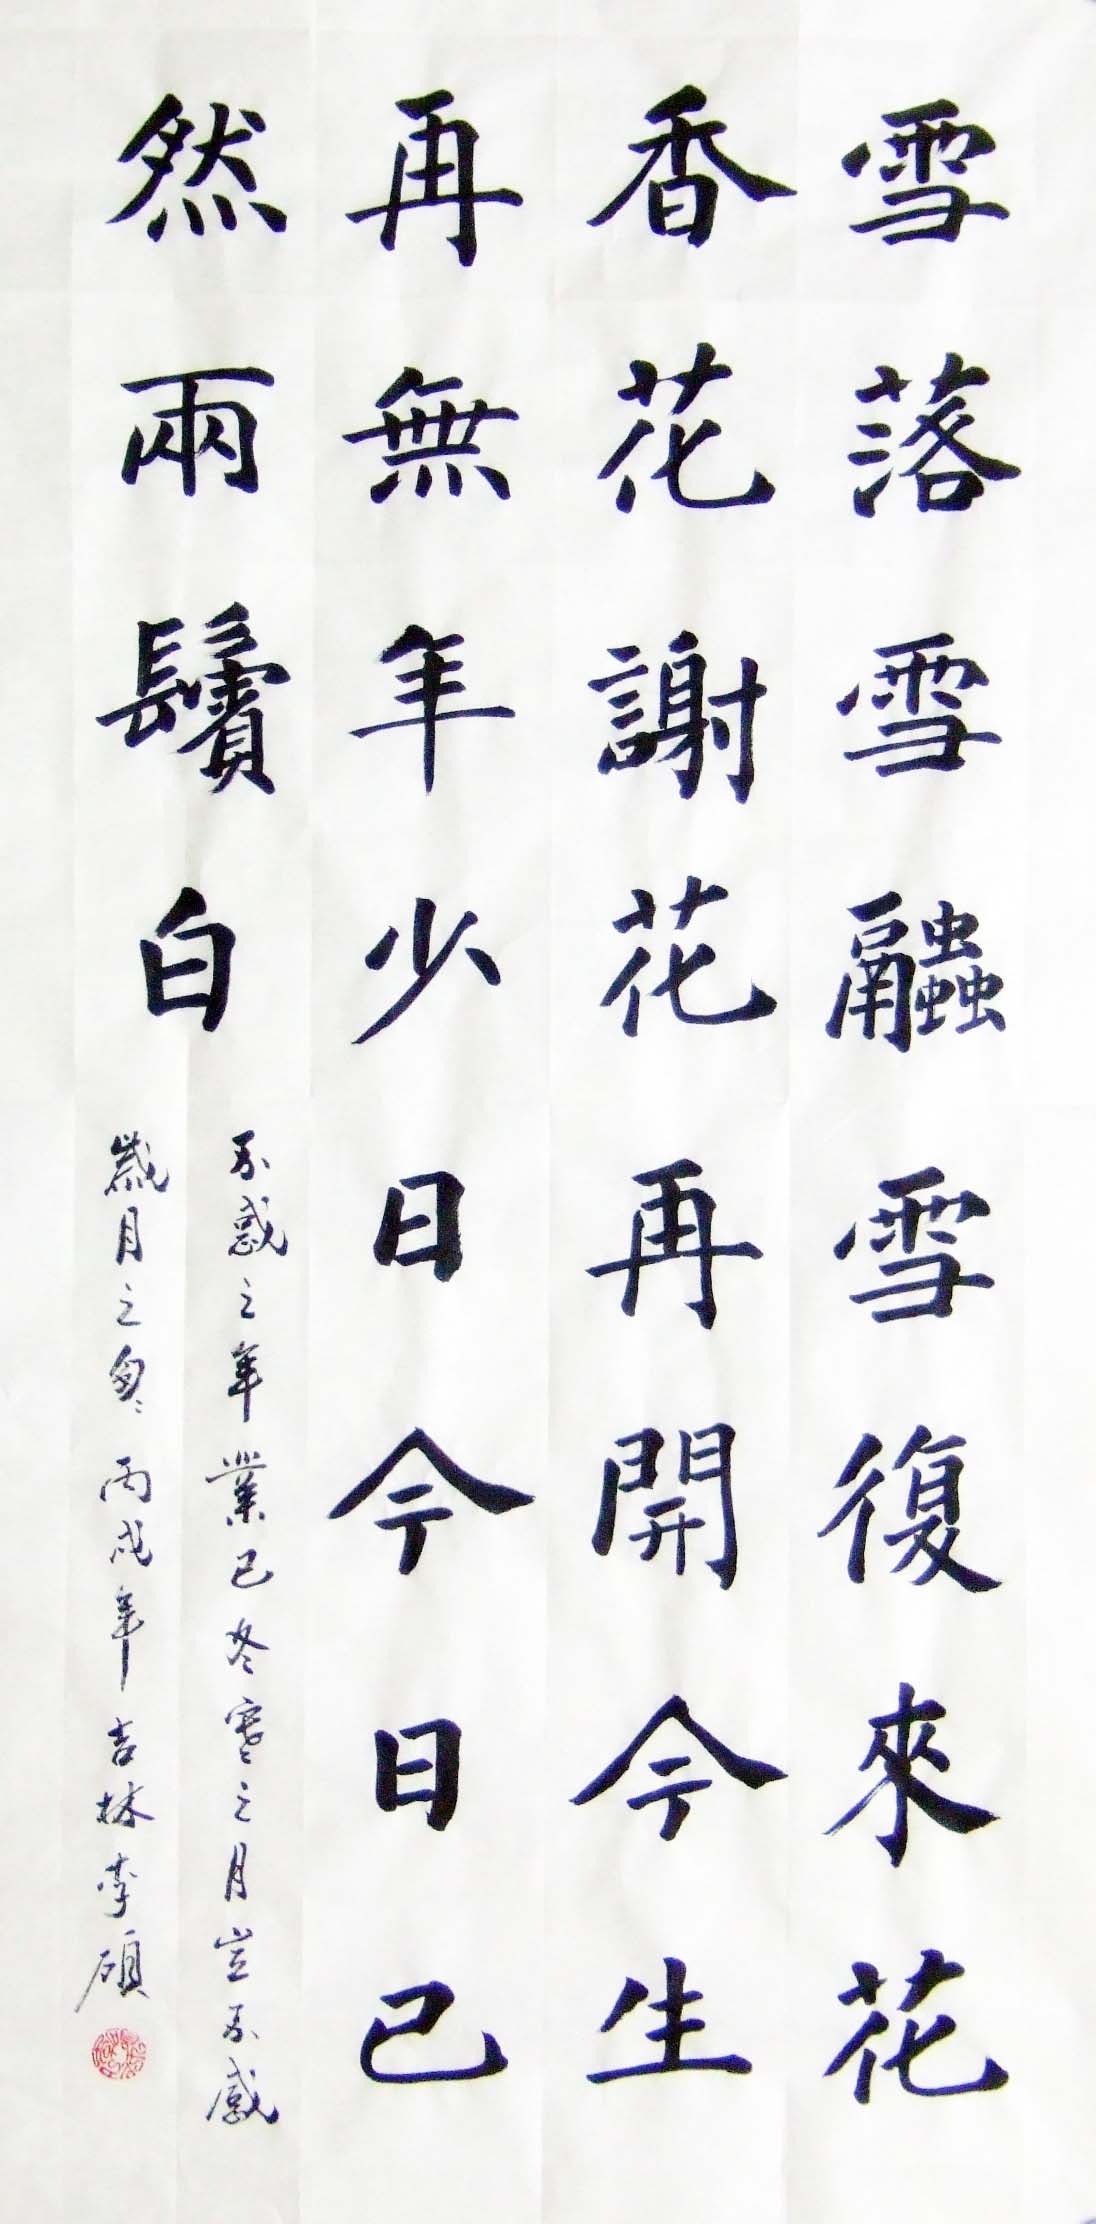 雪落雪融雪復來花
香花謝花再開今生
再無年少日今日已
然兩鬢白
不惑之年業已冬寒之月豈不感
歲月之匆匆丙戌年吉林李碩